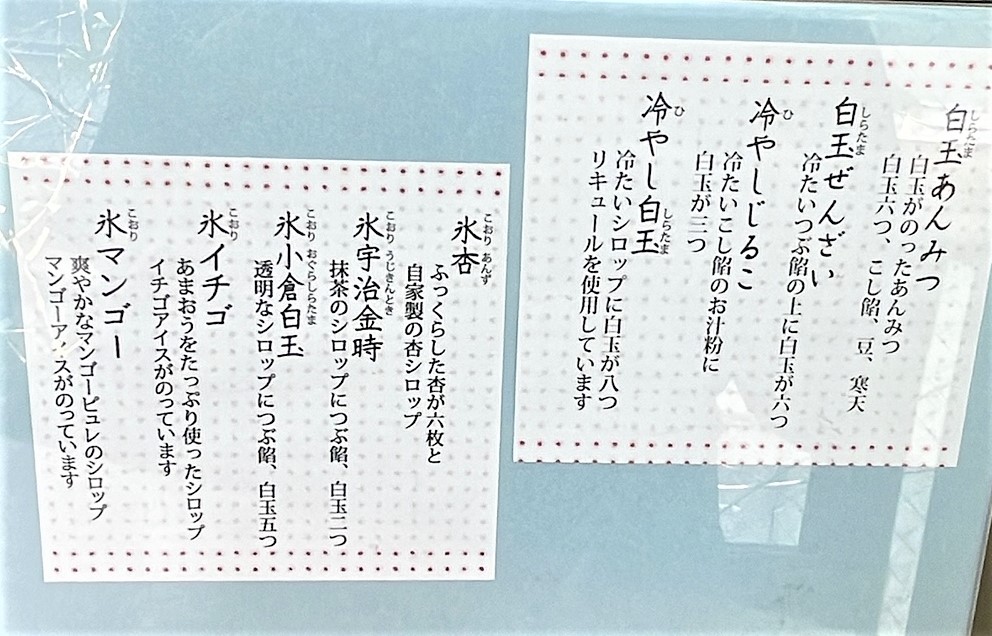 白玉あんみつ
しらたま
白玉がのったあんみつ
白玉六つ、こし餡、豆、寒天
白玉ぜんざい
しらたま
冷たいつぶ餡の上に白玉が六つ
冷やしじるこ
ひ
冷たいこし餡のお汁粉に
白玉が三つ
冷やし白玉
ひ しらたま
冷たいシロップに白玉が八つ
リキュールを使用しています
氷杏
こおり あんず
ふっくらした杏が六枚と
自家製の杏シロップ
氷宇治金時
こおり うじきんとき
抹茶のシロップにつぶ餡、白玉二つ
氷小倉白玉
こおり おぐらしらたま
透明なシロップにつぶ餡、白玉五つ
氷イチゴ
こおり
あまおうをたっぷり使ったシロップ
イチゴアイスがのっています
氷マンゴー
こおり
爽やかなマンゴーピュレのシロップ
マンゴーアイスがのっています